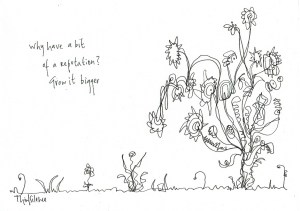 Why have a bit
of a reputation?
Grow it bigger